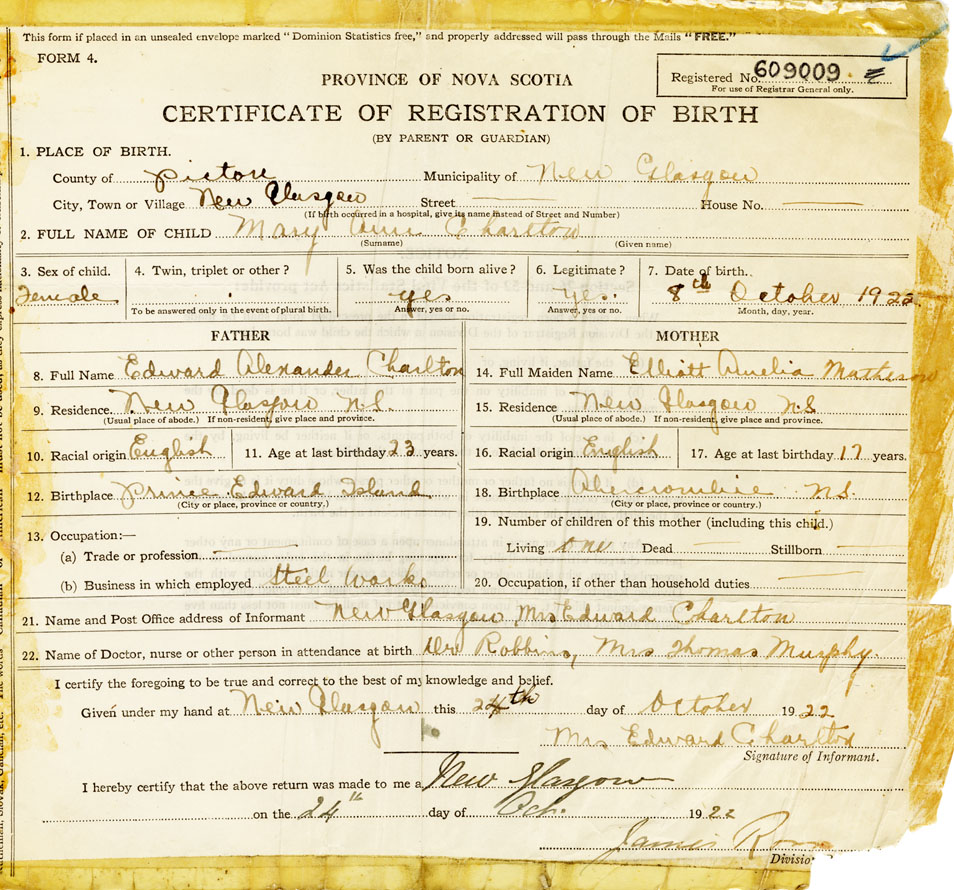 This form if placed in an unsealed envelope marked "Dominion Statistics free," and properly addressed will pass through the Mails "FREE."
FORM 4.
PROVINCE OF NOVA SCOTIA
Registered No. 609009
For use of Registrar General only.
CERTIFICATE OF REGISTRATION OF BIRTH
(BY PARENT OR GUARDIAN)
1. PLACE OF BIRTH.
County of Pictou Municipality of New Glasgow
City, Town or Village New Glasgow Street House No.
(If birth occurred in a hospital, give its name instead of Street and Number)
2. FULL NAME OF CHILD Mary Ann Charlton
(Surname) (Given name)
3. Sex of child. 4. Twin, triplet or other? 5. Was the child born alive? 6. Legitimate? 7. Date of birth.
Female yes yes. 8th October 1922
To be answered only in the event of plural birth. Answer, yes or no. Answer, yes or no. Month, day, year.
FATHER MOTHER
8. Full Name Edward Alexander Charlton 14. Full Maiden Name Elliott Amelia Matheson
9. Residence. New Glasgow N.S. 15. Residence New Glasgow N.S
(Usual place of abode.) If non-resident, give place and province. (Usual place of abode.) If non-resident, give place and province.
10. Racial origin English 11. Age at last birthday 23 years. 16. Racial origin English 17. Age at last birthday 17 years.
12. Birthplace Prince Edward Island 18. Birthplace Abercrombie N.S.
(City or place, province or country,) (City or place, province or country.)
13. Occupation:— 19. Number of children of this mother (including this child.)
(a) Trade or profession. Living one Dead Stillborn
(b) Business in which employed Steel Works 20. Occupation, if other than household duties.
21. Name and Post Office address of Informant New Glasgow Mrs Edward Charlton
22. Name of Doctor, nurse or other person in attendance at birth Dr Robbins, Mrs Thomas Murphy.
I certify the foregoing to be true and correct to the best of my knowledge and belief.
Given under my hand at New Glasgow this 24th day of October 1922
Mrs Edward Charlton
Signature of Informant.
I hereby certify that the above return was made to me a New Glasgow
on the 24th day of Oct. 1922
James
Divisio